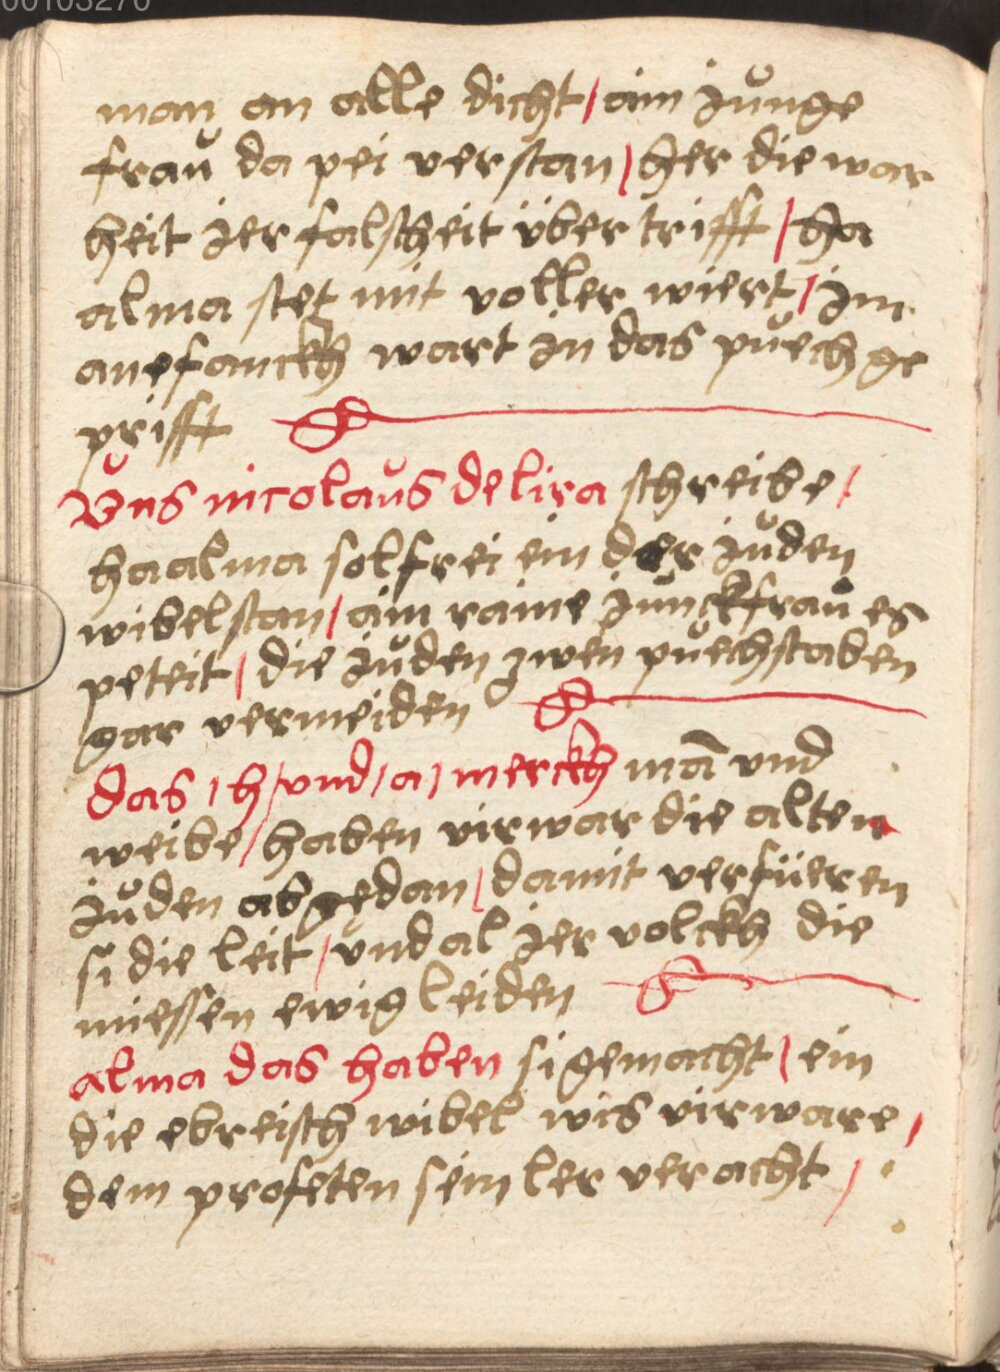 00103270
man an alle dicht / ain jůnge
fraů da pei verstan / her die war
heit jer falscheit über trifft / ha
alma stet mit voller wiert / im
anefanckh wart in das půech ge
prifft
Vns nicolaůs de lira schreibe /
haalma sol frei ein der jůden
wibel stan / ain raine jůnckfraů es
peteit / die jůden zwen půechstaben
gar vermeiden
das / h / vnd / a / merckh mā vnd
weibe / haben virwar die alten
jůden abgedan / damit verfüeren
si die leit / vnd al jer volckh die
miessen ewig leiden
alma das haben si gemacht / ein
die ebreisch wibel wis virware /
dem profeten sein ler veracht /